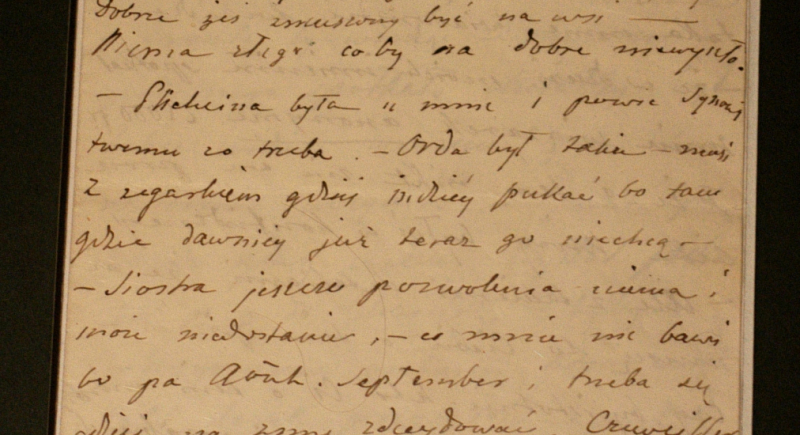 dobrze żeś zmuszony być na wsi —
Niema złego coby na dobre niewyszło.
— Eltheina była u mnie i powie Synowi
twemu co trzeba. — Orda był także — musi
z zegarkiem gdzieś indziej pukać bo tam
gdzie dawniej już teraz go niechcą —
— Siostra jeszcze pozwolenia niema i
może niedostanie, — co mnie nie bawi
bo po Août. September i trzeba się
gdzieś na zimę zdecydować Cruveilher